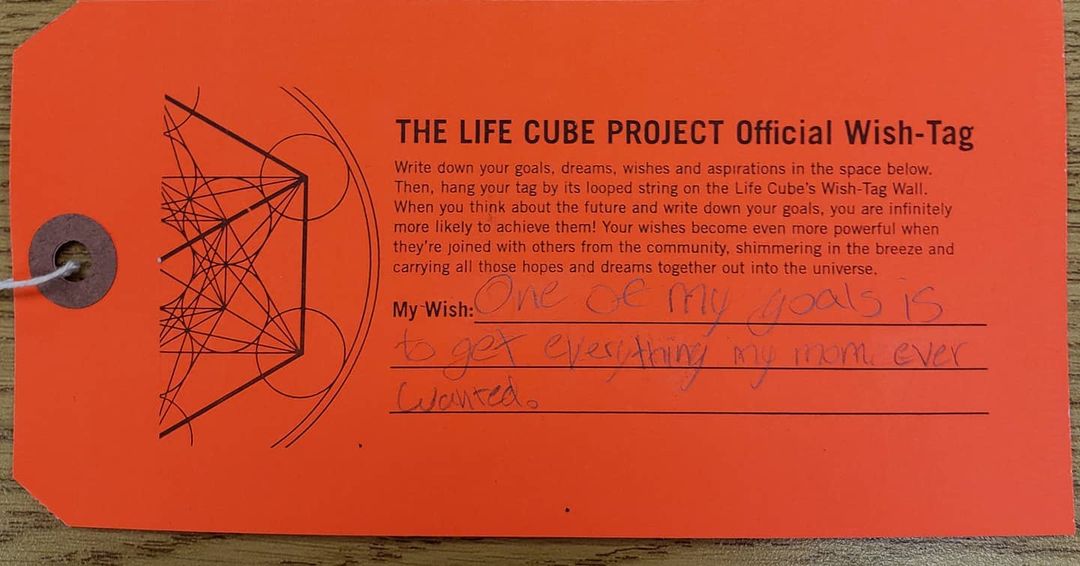 THE LIFE CUBE PROJECT Official Wish-Tag
Write down your goals, dreams, wishes and aspirations in the space below.
Then, hang your tag by its looped string on the Life Cube's Wish-Tag Wall.
When you think about the future and write down your goals, you are infinitely
more likely to achieve them! Your wishes become even more powerful when
they're joined with others from the community, shimmering in the breeze and
carrying all those hopes and dreams together out into the universe.
My Wish: One of my goals is
to get everything my mom ever
wanted.